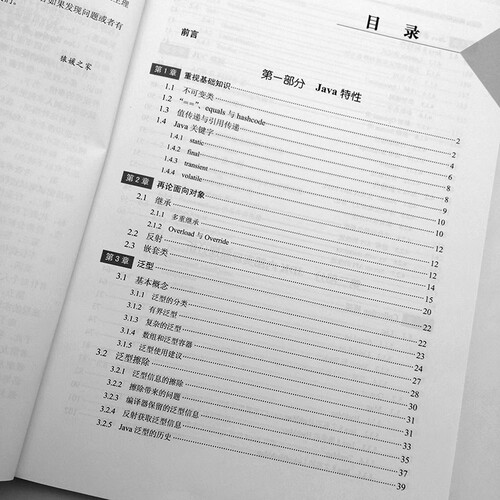 如果发现问题或者有
猿媛之家
目 录
前言
第一部分 Java 特性
第 1 章 重视基础知识 2
1.1 不可变类 2
1.2 “==”、equals 与 hashcode 4
1.3 值传递与引用传递 6
1.4 Java 关键字 8
1.4.1 static 8
1.4.2 final 9
1.4.3 transient 10
1.4.4 volatile 10
第 2 章 再论面向对象 12
2.1 继承 12
2.1.1 多重继承 12
2.1.2 Overload 与 Override 14
2.2 反射 15
2.3 嵌套类 20
第 3 章 泛型 22
3.1 基本概念 22
3.1.1 泛型的分类 22
3.1.2 有界泛型
3.1.3 复杂的泛型
3.1.4 数组和泛型容器
3.1.5 泛型使用建议
3.2 泛型擦除
3.2.1 泛型信息的擦除
3.2.2 擦除带来的问题
3.2.3 编译器保留的泛型信息 35
3.2.4 反射获取泛型信息 37
3.2.5 Java 泛型的历史 39